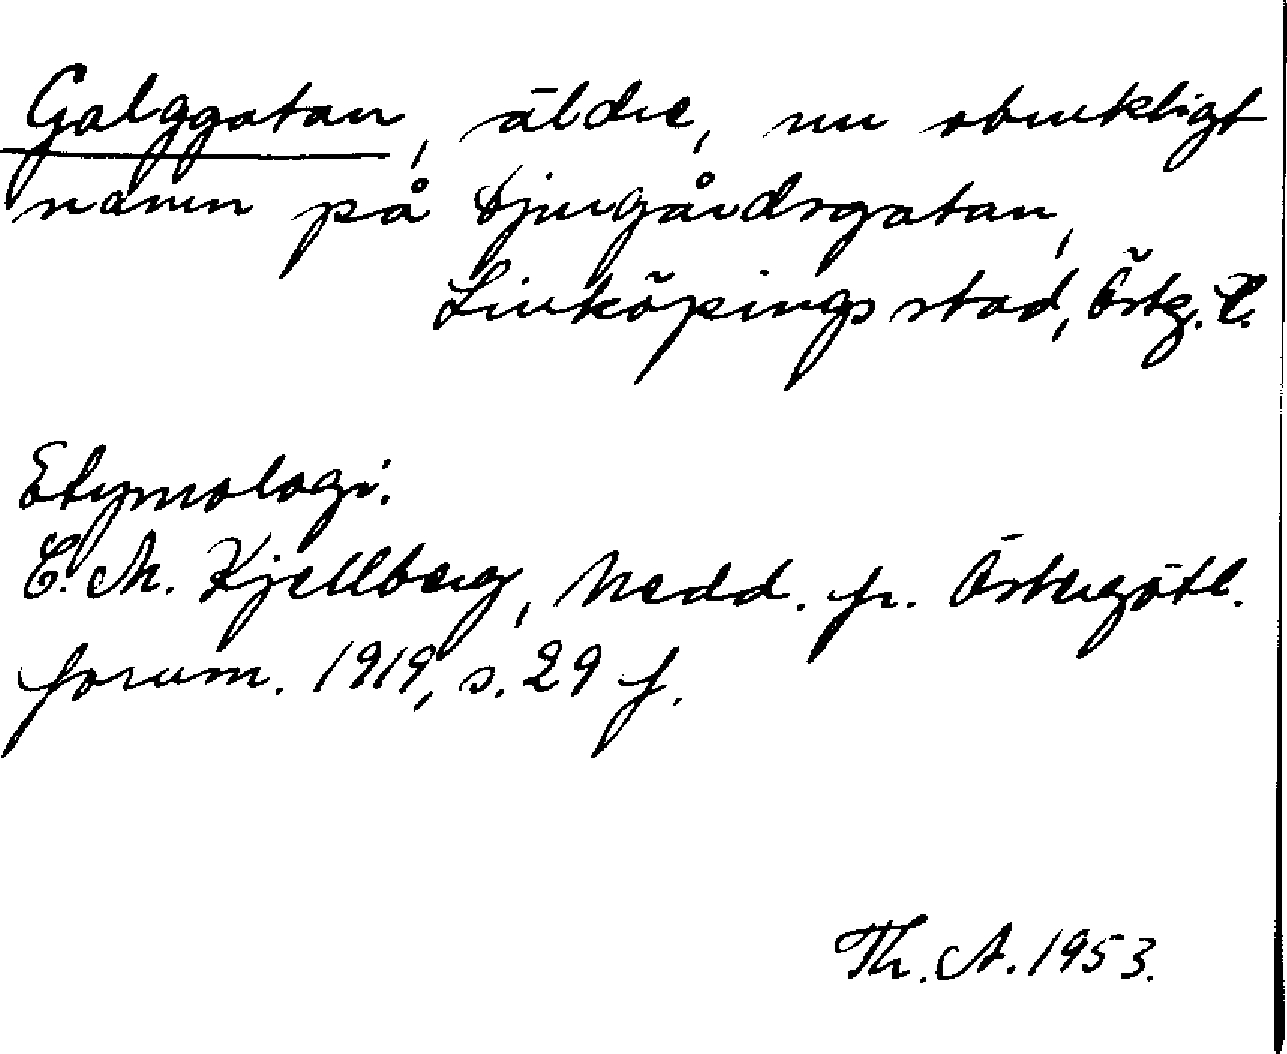 Galggatan, äldre, nu obrukligt
namn på Djurgårdsgatan,
Linköpings stad, Östg. l.
Etymologi.
C. M. Kjellberg, Medd. fr. Östergötl.
fornm. 1919, s. 29 f.
Th. A. 1953.